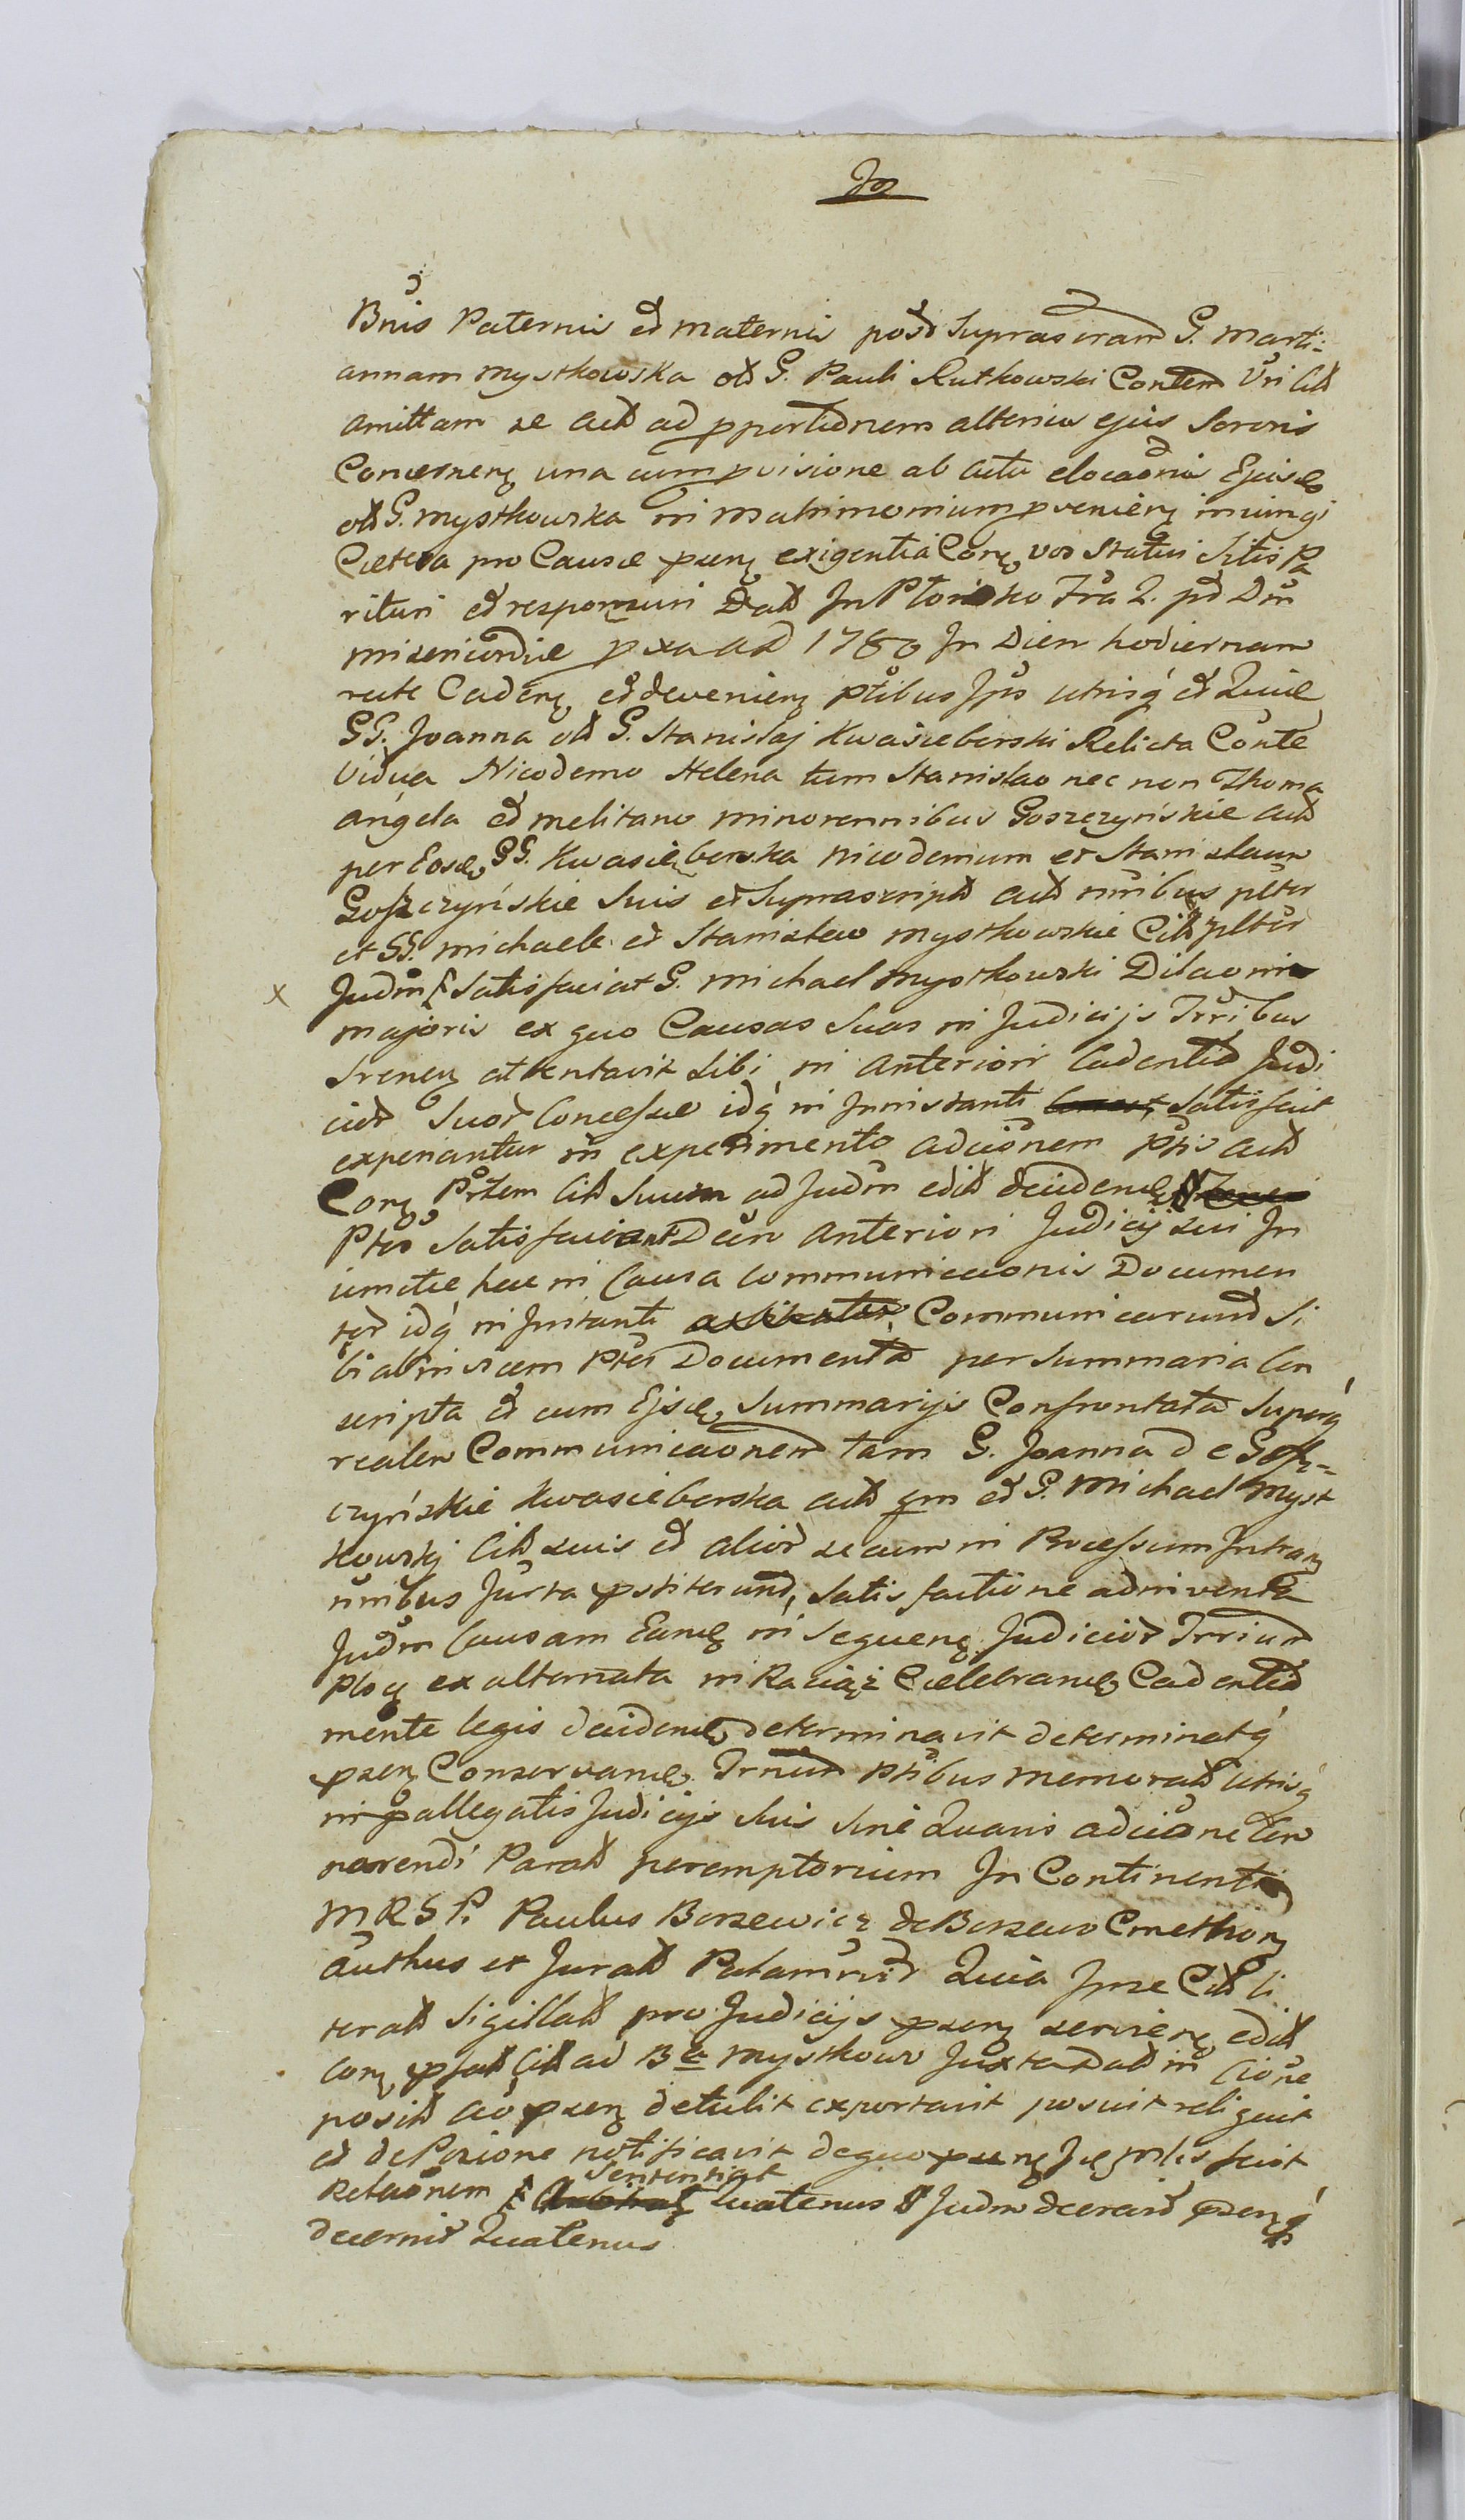 Bnis Paternis et Maternis post Suprascram G. Marti-
annam Mystkowska olt G. Pauli Rutkowski Conten Uri Citt
amittam se actt ad pportionem alterius ejus Sororis
Concernen una cum pvisione ab actu elocaonis Ejusd
olt G. Mystkowska in Matrimonium pvenien iniungi
Cætera pro Causæ psen exigentia Corn vos Staturi Sitis Pa
rituri et responsuri Datt In Płońsko Fra 2. pt Dm
misericordiæ pxa AD 1780 In Diem hodiernam
recte Caden et devenien ptibus Ips utrisq et Quiæ
GG. Joanna olt G. Stanislaj Kwasieborski Relicta Conte
Vidua Nicodemo Helena tum Stanislao nec non Thoma
Angela et Melitano minorennibus Goszczyńskie actt
per Eosd GG. Kwasieborska Nicodemum et Stanislaum
Goszczyńskie Suis et Suprascriptt actt nnibus plter
et GG. Michaele et Stanislao Mystkowskie Citt pltur
x Judm Satisfaciat G. Michael Mystkowski Dilaonis
majoris ex quo Causas Suas in Judicijs Trribus
Srenen attentavit Sibi in anteriori Cadentia Judi
cior Suor Concessæ idq in Instanti Satisfecit
experiantur in experimento adcionem Ptis actt
Corn Ptem Citt Suum ad Judm editt decidend
Ptes Satisfaciant Dcin anteriori Judicij sui In
iunctæ hac in Causa Communicaonis Documen
tor idq in Instanti Communicarund Si
bi abinvicem Ptes Documenta per Summaria Con
scripta et cum Ejsd Summarijs Confrontata Superq
realem Communicaonem tam G. Joanna de Gosz-
czyńskie Kwasieborska actt qm et G. Michael Myst
kowskj Citt suis et alior secum in Processum Intran
nnibus Jurta pstiterund, Satisfactione adinventa
Judm Causam Eand in Sequen Judicior Trrium
Ploc ex alternata in Raciąż Celebrand Cadentia
mente legis decidend determinavit determinatq
psen Conservand Trnum ptibus memoratt utrisq
in pallegatis Judicijs Suis Sine Quavis adcione Con
norendi Paratt peremptorium In Continenti
MRSP. Paulus Borzewicz de Borzewo Cmethon
authus et Juratt Palamvit Quia Ipse Citt li
teratt Sigillatt pro Judicijs psen servien editt
Corn psatt Citt ad Ba Mystkowo Juxta Datt in Cione
positt ao psen detulit exportavit posuit reliquit
et de Pozione notificavit de quo psen fecit
Relaonem Sententiat Quatenus Judm decrevit psenq
decernit Quatenus